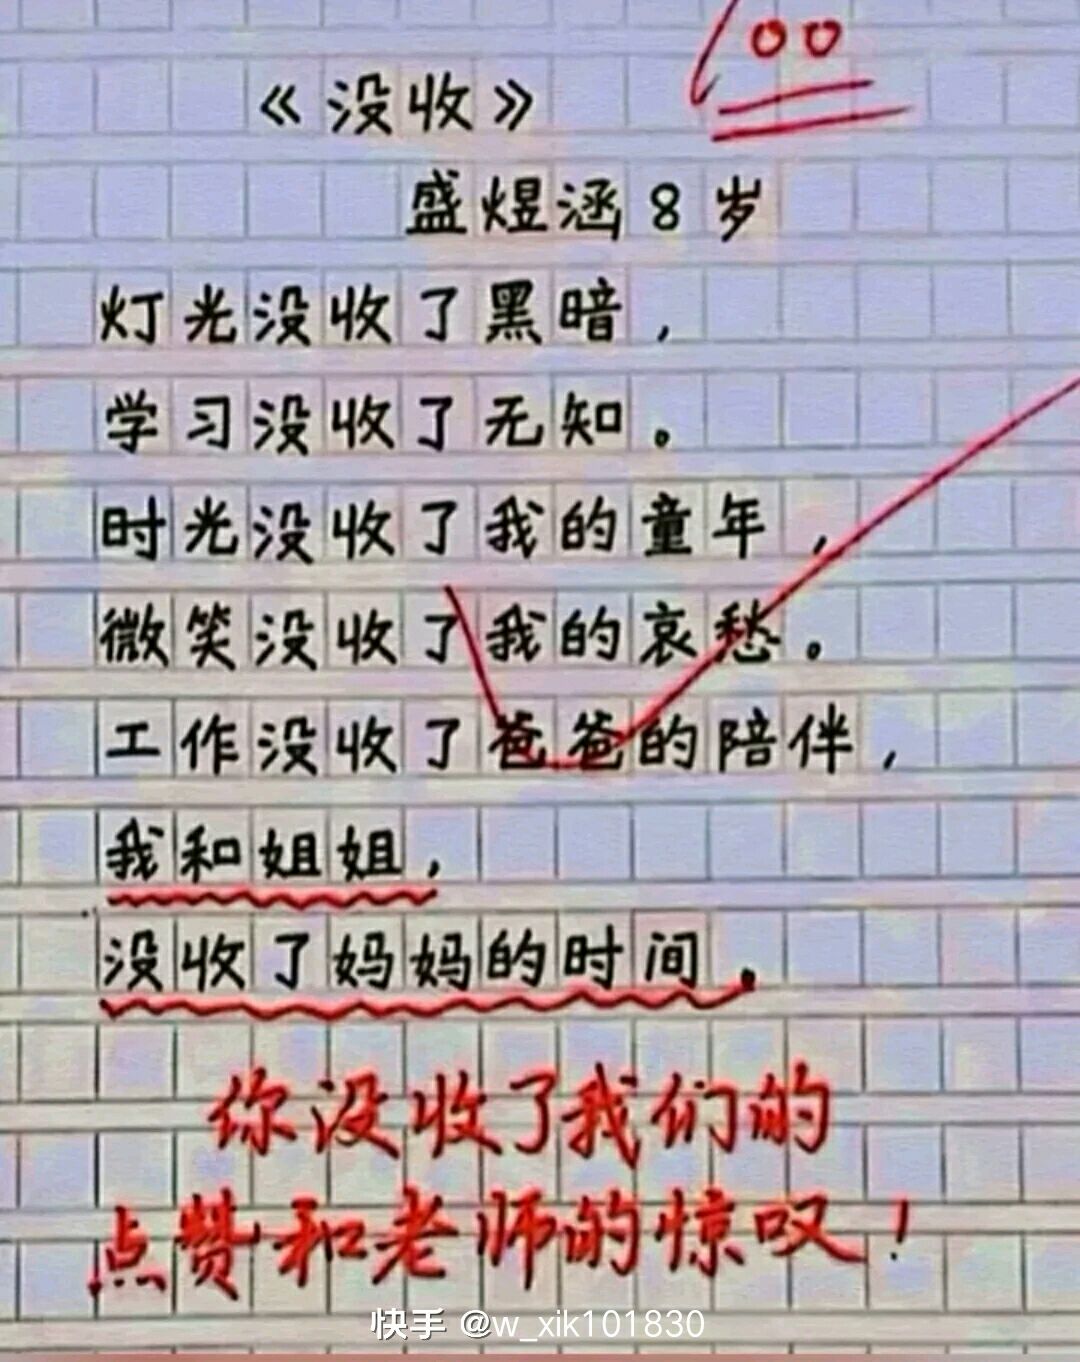 100
《没收》
盛煜涵8岁
灯光没收了黑暗，
学习没收了无知。
时光没收了我的童年，
微笑没收了我的哀愁。
工作没收了爸爸的陪伴，
我和姐姐，
没收了妈妈的时间。
你没收了我们的
点赞和老师的惊叹！
快手 @w_xik101830